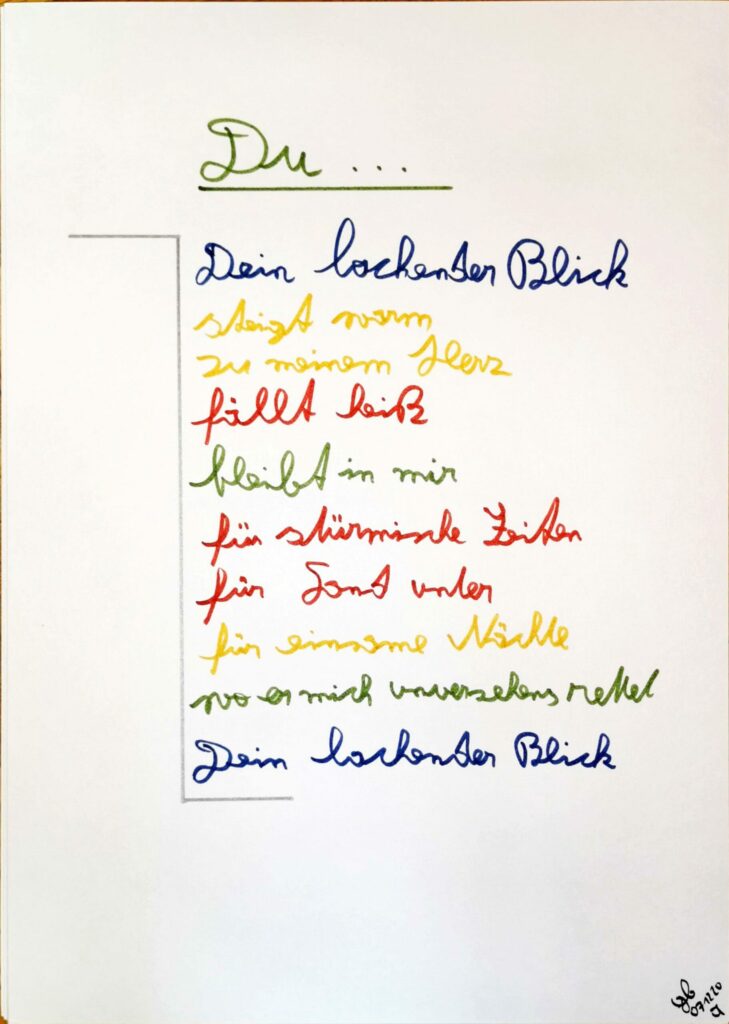 Du ...
Dein lachender Blick
steigt warm
zu meinem Herz
fällt heiß
bleibt in mir
für stürmische Zeiten
für Land unter
für einsame Nächte
wo er mich unversehens rettet
Dein lachender Blick
071220